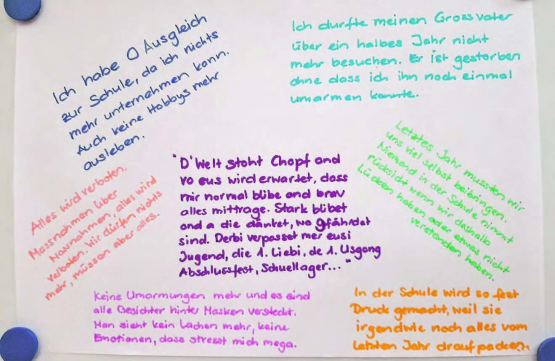 Ich habe 0 Ausgleich
zur Schule, da ich nichts
mehr unternehmen kann.
Auch keine Hobbys mehr
ausleben.
Ich durfte meinen Grossvater
über ein halbes Jahr nicht
mehr besuchen. Er ist gestorben
ohne dass ich ihn noch einmal
umarmen konnte.
Alles wird verboten.
Massnahmen über
Massnahmen, alles wird
verboten. Wir dürfen nichts
mehr, müssen aber alles.
"D'Welt stoht Chopf and
vo eus wird erwartet, dass
mir normal blibe and brav
alles mittrage. Stark blibet
and a die dänket, wo gfährdet
sind. Derbi verpasset mer eusi
Jugend, die 1. Liebi, de 1. Usgang
Abschlussfest, Schuellager..."
Letztes Jahr mussten wir
uns viel selbst beibringen.
Niemand in der Schule nimmt
rücksicht wenn wir deshalb
Lücken haben oder etwas nicht
verstanden haben.
Keine Umarmungen mehr und es sind
alle Gesichter hinter Masken versteckt.
Man sieht kein Lachen mehr, keine
Emotionen, dass stresst mich mega.
In der Schule wird so fest
Druck gemacht, weil sie
irgendwie noch alles vom
letzten Jahr drauf packen.